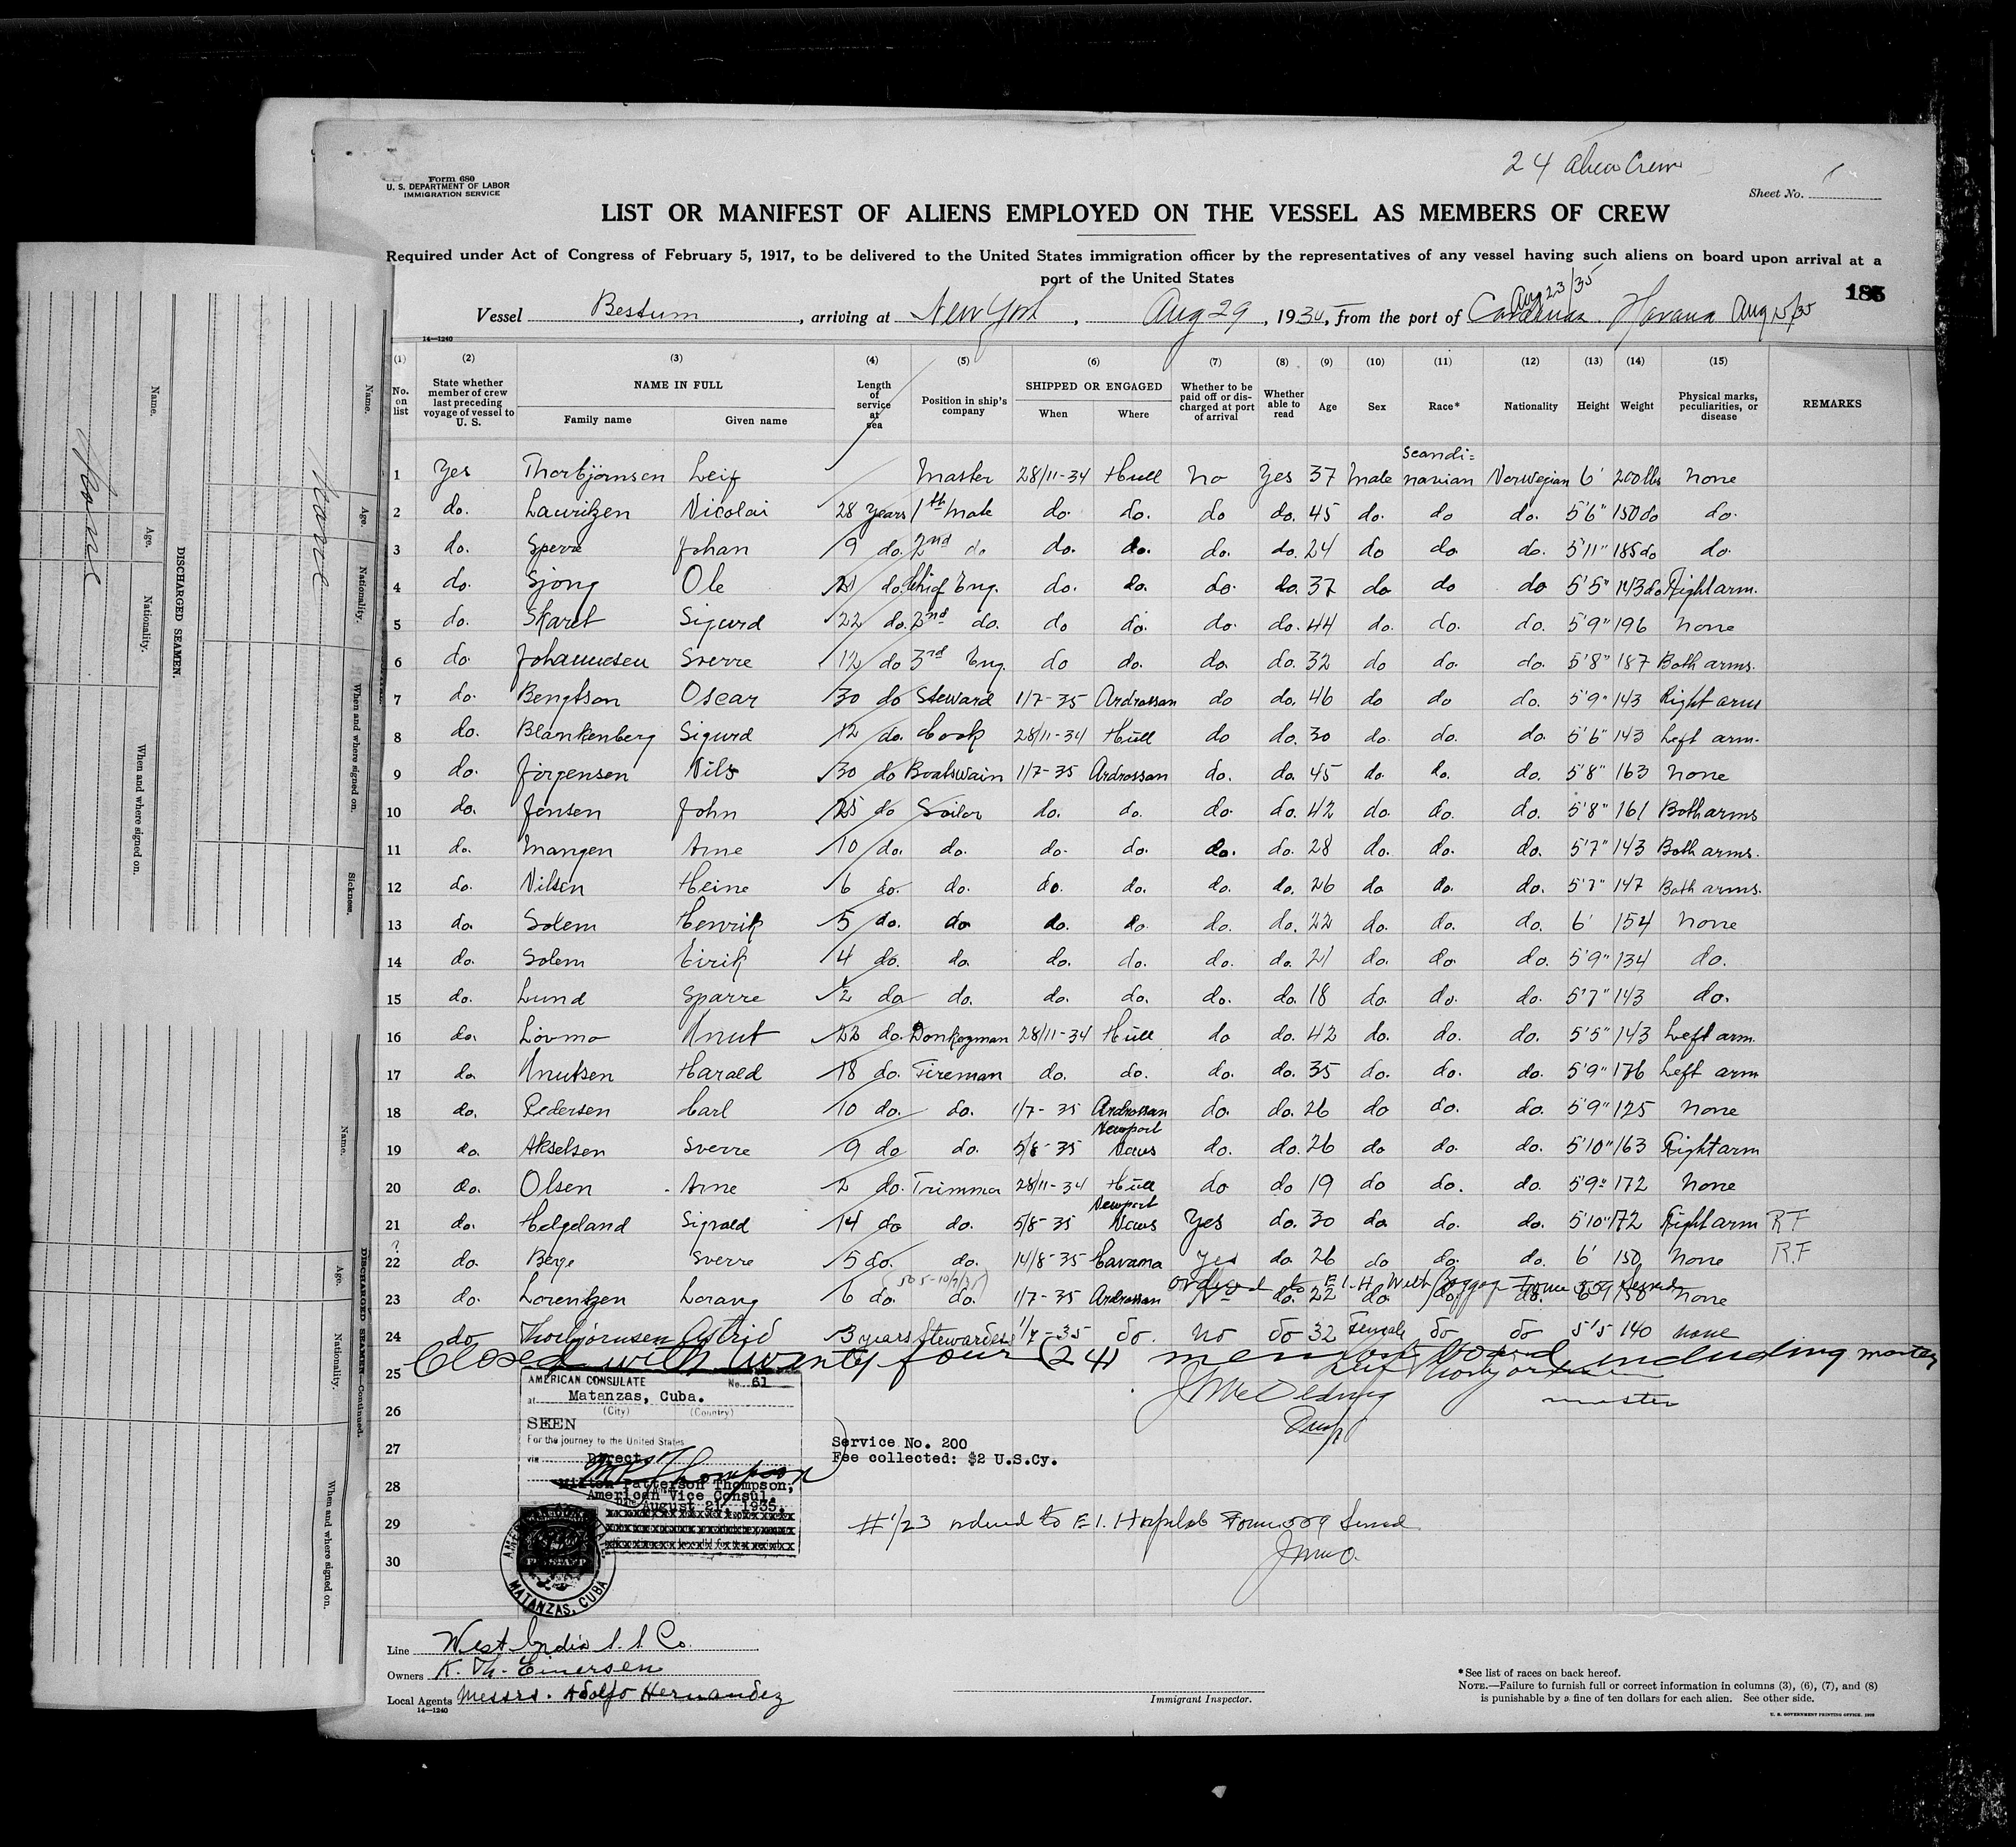 24 alien Crew
Form 680
U. S. DEPARTMENT OF LABOR
IMMIGRATION SERVICE
Sheet No. 1
LIST OR MANIFEST OF ALIENS EMPLOYED ON THE VESSEL AS MEMBERS OF CREW
Required under Act of Congress of February 5, 1917, to be delivered to the United States immigration officer by the representatives of any vessel having such aliens on board upon arrival at a
port of the United States
Aug 23/35
Vessel Bestum, arriving at New York, Aug 29, 193, from the port of Cardenas. Havana Aug 15/35
14—1240
(1) (2) (3) (4) (5) (6) (7) (8) (9) (10) (11) (12) (13) (14) (15)
No. on list State whether member of crew last preceding voyage of vessel to U. S. NAME IN FULL Family name Given name Length of service at sea Position in ship's company SHIPPED OR ENGAGED When Where Whether to be paid off or discharged at port of arrival Whether able to read Age Sex Race* Nationality Height Weight Physical marks, peculiarities, or disease REMARKS
1 Yes Thorbjörnsen Leif Master 28/11-34 Hull No Yes 37 Male Scandi=navian Norwegian 6' 200 lbs None
2 do. Lauritzen Nicolai 28 years 1th Mate do. do. do do. 45 do. do do. 5'6" 150 do do.
3 do. Sperre Johan 9 do. 2nd do do. do. do. do. 24 do do. do. 5'11" 185 do do.
4 do. Sjong Ole 21 do. Chief Eng. do. do. do. do. 37 do do do 5'5" 143 do Right arm.
5 do. Skaret Sigurd 22 do. 2nd do. do do. do. do. 44 do. do. do. 5'9" 196 None
6 do. Johannesen Sverre 12 do 3rd Eng. do do. do. do. 32 do do. do. 5'8" 187 Both arms.
7 do. Bengtson Oscar 30 do Steward 1/7-35 Ardrossan do do. 46 do do do. 5'9" 143 Right arm
8 do. Blankenberg Sigurd 12 do. Cook 28/11-34 Hull do do. 30 do. do. do. 5'6" 143 Left arm.
9 do. Jörgensen Nils 30 do Boatswain 1/7-35 Ardrossan do. do. 45 do. do. do. 5'8" 163 None
10 do. Jensen John 25 do Sailor do. do. do. do. 42 do. do. do. 5'8" 161 Both arms
11 do. Mangen Arne 10 do. do. do. do. do. do. 28 do. do. do. 5'7" 143 Both arms.
12 do. Nilsen Heine 6 do. do. do. do. do. do. 26 do do. do. 5'7" 147 Both arms.
13 do. Solem Henrik 5 do. do do. do do. do. 22 do. do. do. 6' 154 None
14 do. Solem Eirik 4 do. do. do. do. do. do. 21 do. do do. 5'9" 134 do.
15 do. Lund Sparre 2 do do. do. do. do. do. 18 do. do. do. 5'7" 143 do.
16 do. Lövmo Knut 22 do. Donkeyman 28/11-34 Hull do do. 42 do. do. do. 5'5" 143 Left arm.
17 do. Knutsen Harald 18 do. Fireman do. do. do. do. 35 do. do. do. 5'9" 176 Left arm
18 do. Pedersen Carl 10 do. do. 1/7-35 Ardrossan do. do. 26 do do. do. 5'9" 125 None
19 do. Akselsen Sverre 9 do do. 5/8-35 Newport News do. do. 26 do do. do. 5'10" 163 Right arm
20 do. Olsen Arne 2 do. Trimmer 28/11-34 Hull do do 19 do do. do. 5'9" 172 None
21 do. Helgeland Sigvald 14 do do. 5/8-35 Newport News Yes do. 30 do do. do. 5'10" 172 Right arm RF
22 ? do. Berge Sverre 5 do. do. 14/8-35 Havana Yes do 26 do do. do. 6' 150 None R.F
ordered to E. I. H. with baggage Form 509 Served
23 do. Lorentzen Lorang 6 do. do. 1/7-35 Ardrossan do. 22 do. do. do. 150 None
24 do Thorbjørnsen Astrid 3 years Stewardess 1/7-35 do. No do 32 Female do do 5'5 140 none
Closed with twenty four (24) members board including master
25
Leif Thorbjørnsen
master
26
27
28
29
30
AMERICAN CONSULATE No. 61
at Matanzas, Cuba.
(City) (Country)
SEEN
For the journey to the United States
via Direct
M P Thompson
Milton Patterson Thompson,
American Vice Consul.
Date August 21, 1935.
Service No. 200
Fee collected: $2 U.S.Cy.
FEE STAMP
MATANZAS, CUBA
#1/23 ordered to E. I. Hospital Form 509 Served
Line West India S. S Co.
Owners K. Th. Einersen
Local Agents Messrs. Adolfo Hernandez
14—1240
Immigrant Inspector.
*See list of races on back hereof.
NOTE.—Failure to furnish full or correct information in columns (3), (6), (7), and (8)
is punishable by a fine of ten dollars for each alien. See other side.
U. S. GOVERNMENT PRINTING OFFICE
DISCHARGED SEAMEN.
Name. Age. Nationality. When and where signed on.
None
Name. Age. Nationality. When and where signed on. Sickness.
None
DISCHARGED SEAMEN—Continued.
Name. Age. Nationality. When and where signed on.